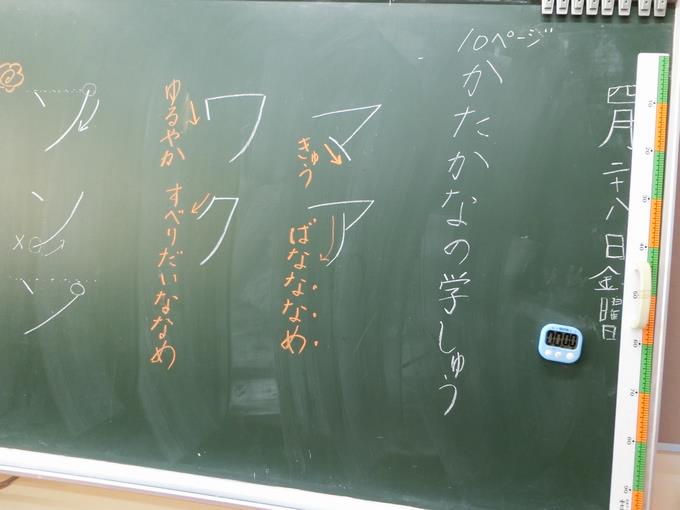 四月二十八日金曜日
10ページ
かたかなの学しゅう
マ
きゅう
ア
ばなななめ
ワ
ゆるやか
ク
すべりだいななめ
ソ
ン
×
ソ
00:00